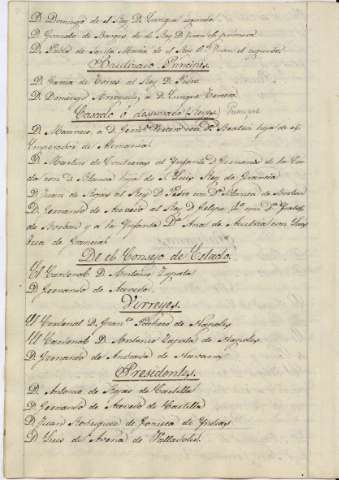 D. Domingo de el Rey D. Enrique segundo
D. Gonzalo de Burgos de el Rey D. Juan el primero
D. Pablo de Santa Maria de el Rey Dn. Juan el segundo
Bautizaron Principes.
D. Garcia de Torres al Rey D. Pedro
D. Domingo a D. Enrique tercero
Casado o desposado Principes
D. Mauricio a D. con Da. Beatriz hija de el
Emperador de Alemania.
D. Martin de Contreras al Ynfante D. Fernando de la Cer
da con D. Blanca hija de S. Luis Rey de Francia
D. Juan de Rojas al Rey D. Pedro con Da. Blanca de Borbon
D. Fernando de Acevedo al Rey D. Felipe 4o. con Da. Ysabel
de Borbon y a la Ynfanta Da. Ana de Austria con Luis
trece de Francia.
De el Consejo de Estado.
El Cardenal D. Antonio Zapata
D. Fernando de Acevedo.
Virreyes.
El Cardenal D. Franco. Pacheco de Napoles
El Cardenal D. Antonio Zapata de Napoles.
D. Fernando de Andrada de Navarra
Presidentes.
D. Antonio de Rojas de Castilla
D. Fernando de Acevedo de Castilla
D. Juan Rodriguez de Fonseca de Yndias
D. Luis de Acuña de Valladolid.